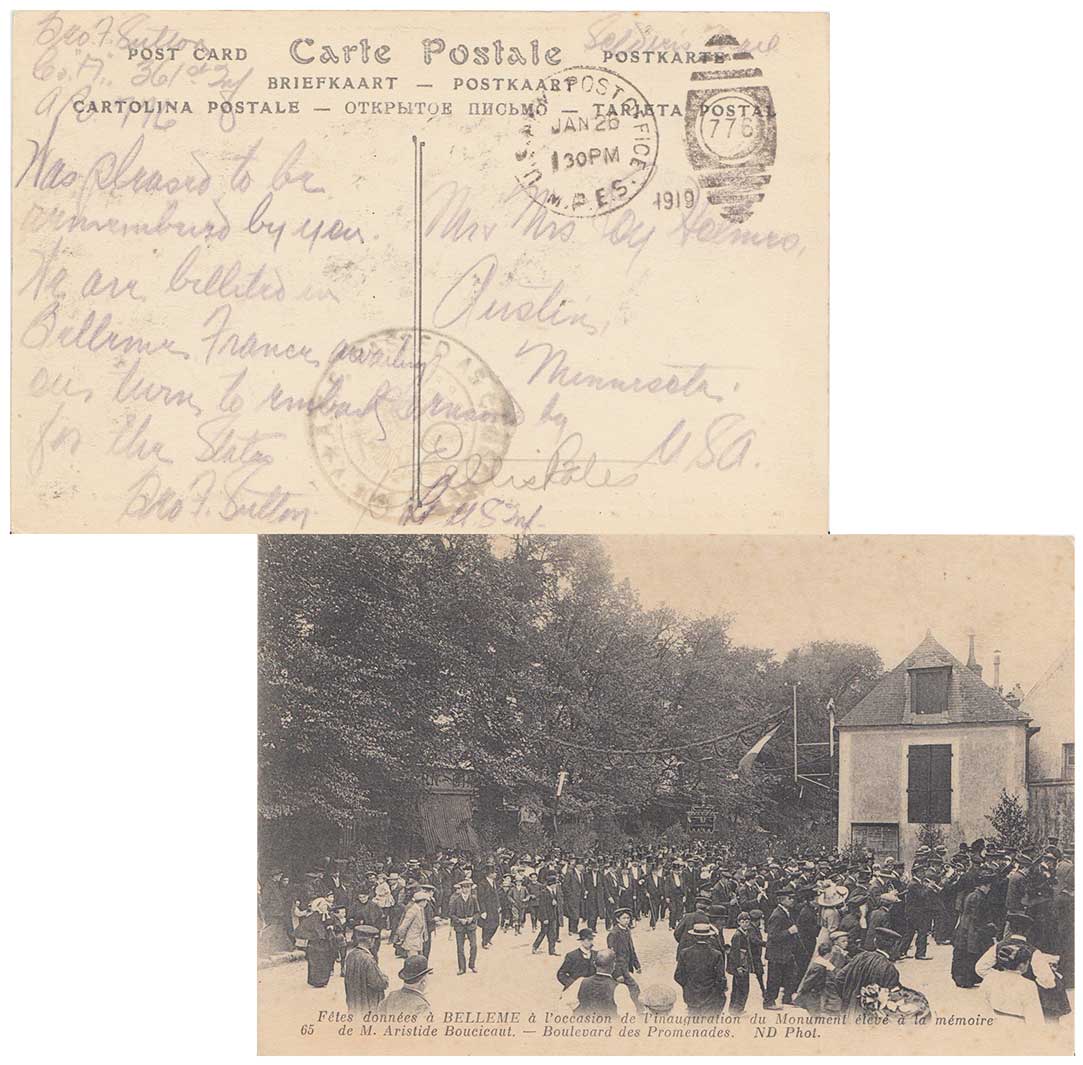 Geo F. Sutton
Co. A. 361st Inf
A.P.O. 776
Soldiers Mail
POST CARD Carte Postale POSTKARTE
BRIEFKAART — POSTKAART
CARTOLINA POSTALE — ОТКРЫТОЕ ПИСЬМО — TARJETA POSTAL
POST OFFICE
JAN 26
130PM
M.P.E.S.
1919
776
Was pleased to be
remembered by you.
We are billeted in
Belleme France awaiting
our turn to embark
for the States
Geo F. Sutton
Mr & Mrs. Cy Holmes,
Austin,
Minnesota.
USA.
Censored by
A.E.F. PASSED AS CENSORED
Fêtes données à BELLEME à l'occasion de l'inauguration du Monument élevé à la mémoire
65 de M. Aristide Boucicaut. — Boulevard des Promenades. ND Phot.